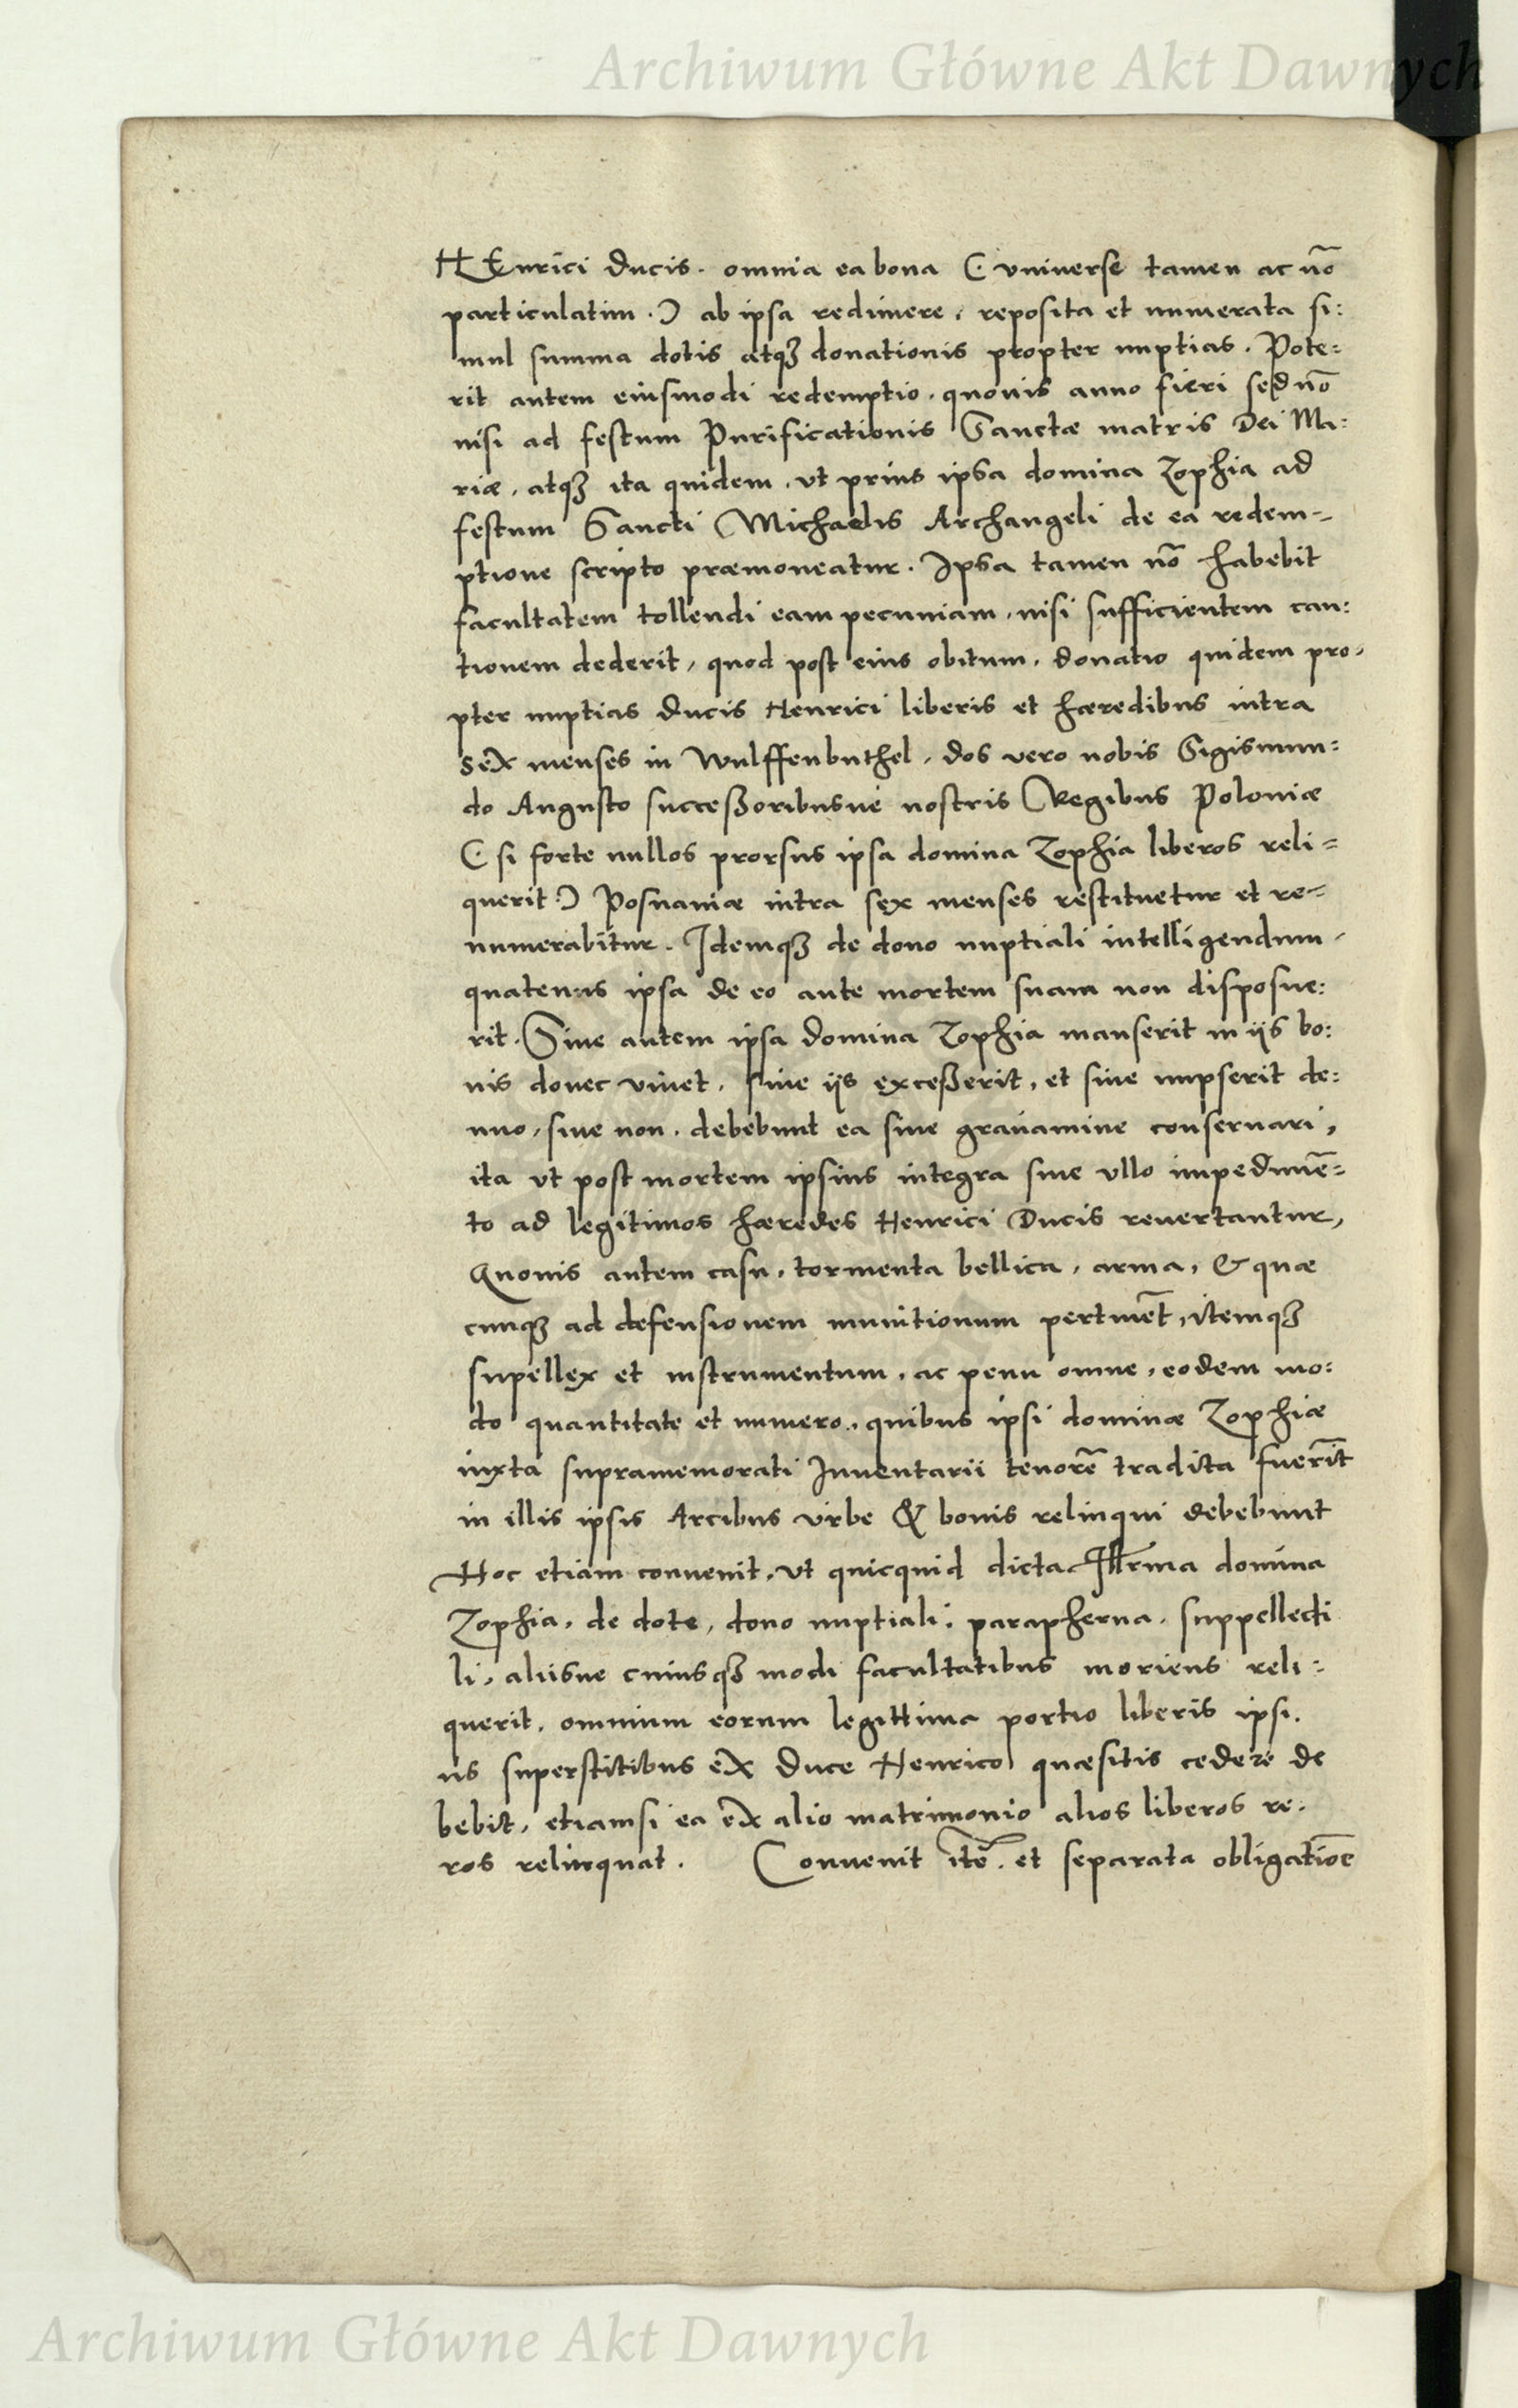 Archiwum Główne Akt Dawnych
HEnrici Ducis. omnia ea bona (. vniuerse tamen ac nō
particulatim.) ab ipsa redimere, reposita et numerata si:
mul summa dotis atqȝ donationis propter nuptias. Pote:
rit autem eiusmodi redemptio. quouis anno fieri sed nō
nisi ad festum Purificationis Sanctæ matris Dei Ma:
riæ, atqȝ ita quidem, vt prius ipsa domina Zophia ad
festum Sancti Michaelis Archangeli de ea redem-
ptione scripto præmoneatur. Ipsa tamen nō habebit
facultatem tollendi eam pecuniam, nisi sufficientem cau:
tionem dederit, quod post eius obitum, donatio quidem pro-
pter nuptias Ducis Henrici liberis et hæredibus intra
sex menses in Wulffenbuthel, dos vero nobis Sigismun:
do Augusto successoribusue nostris Regibus Poloniæ
(. si forte nullos prorsus ipsa domina Zophia liberos reli-
querit.) Posnaniæ intra sex menses restituetur et re-
numerabitur. Idemqȝ de dono nuptiali intelligendum,
quatenus ipsa de eo ante mortem suam non disposue:
rit. Siue autem ipsa domina Zophia manserit in ijs bo:
nis donec viuet, siue ijs excesserit, et siue nupserit de:
nuo, siue non, debebunt ea sine grauamine conseruari,
ita vt post mortem ipsius integra sine vllo impedimē-
to ad legitimos hæredes Henrici Ducis reuertantur,
Quouis autem casu, tormenta bellica, arma, & quæ
cunqȝ ad defensionem munitionum pertinēt, itemqȝ
supellex et instrumentum, ac penu omne, eodem mo:
do quantitate et numero, quibus ipsi dominæ Zophiæ
iuxta supramemorati Inuentarii tenorē tradita fuerīt
in illis ipsis Arcibus vrbe & bonis relinqui debebunt
Hoc etiam conuenit, vt quicquid dicta Illrma domina
Zophia, de dote, dono nuptiali, parapherna, suppellecti
li, aliisue cuiusqȝ modi facultatibus moriens reli-
querit, omnium eorum legittima portio liberis ipsi.
us superstitibus ex Duce Henrico quæsitis cedere de
bebit, etiamsi ea ex alio matrimonio alios liberos re.
ros relinquat. Conuenit itē. et separata obligatiōe
Archiwum Główne Akt Dawnych